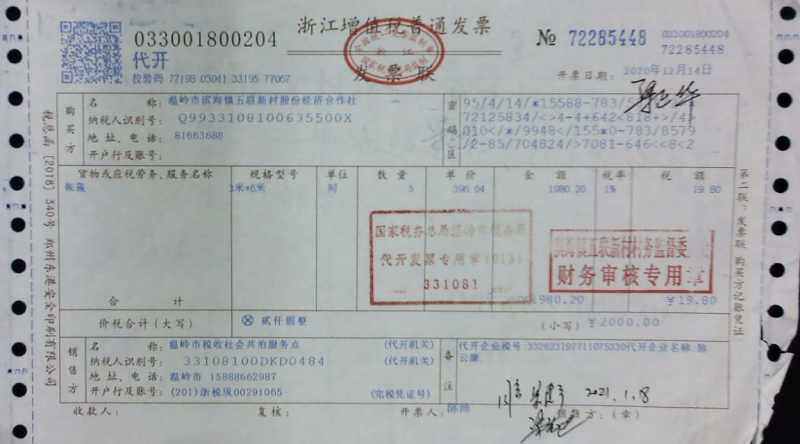 浙江增值税普通发票
033001800204
代开
发票联
№ 72285448
033001800204
72285448
校验码 77195 03041 33195 77067
开票日期: 2020年12月14日
购买方
名称: 温岭市滨海镇五联新村股份经济合作社
纳税人识别号: Q9933108100635500X
地址、电话: 81663688
开户行及账号:
密码区
95/4/14/*15588-783/
72125834/<>4-4+642<818+>/4>
010</*/9948</155*0-783/8579
/2-85/704824/>7081-646<<8<2
货物或应税劳务、服务名称 规格型号 单位 数量 单价 金额 税率 税额
帐篷 3米*6米 5 396.04 1980.20 1% 19.80
国家税务总局温岭市税务局
代开发票专用章
331081
财务审核专用章
合计 1980.20 ¥19.80
价税合计(大写) ⊗ 贰仟圆整 (小写) ¥2000.00
销售方
名称: 温岭市税收社会共治服务点 (代开机关)
纳税人识别号: 33108100DKD0484 (代开机关)
地址、电话: 温岭市 15888662987
开户行及账号: (201)浙税现00291065 (完税凭证号)
备注
代开企业税号: 代开企业名称: 陈
2021.1.8
收款人: 复核: 开票人: 销售方:(章)
税总函〔2018〕340号 郑州东港安全印刷有限公司
第二联:发票联 购买方记账凭证